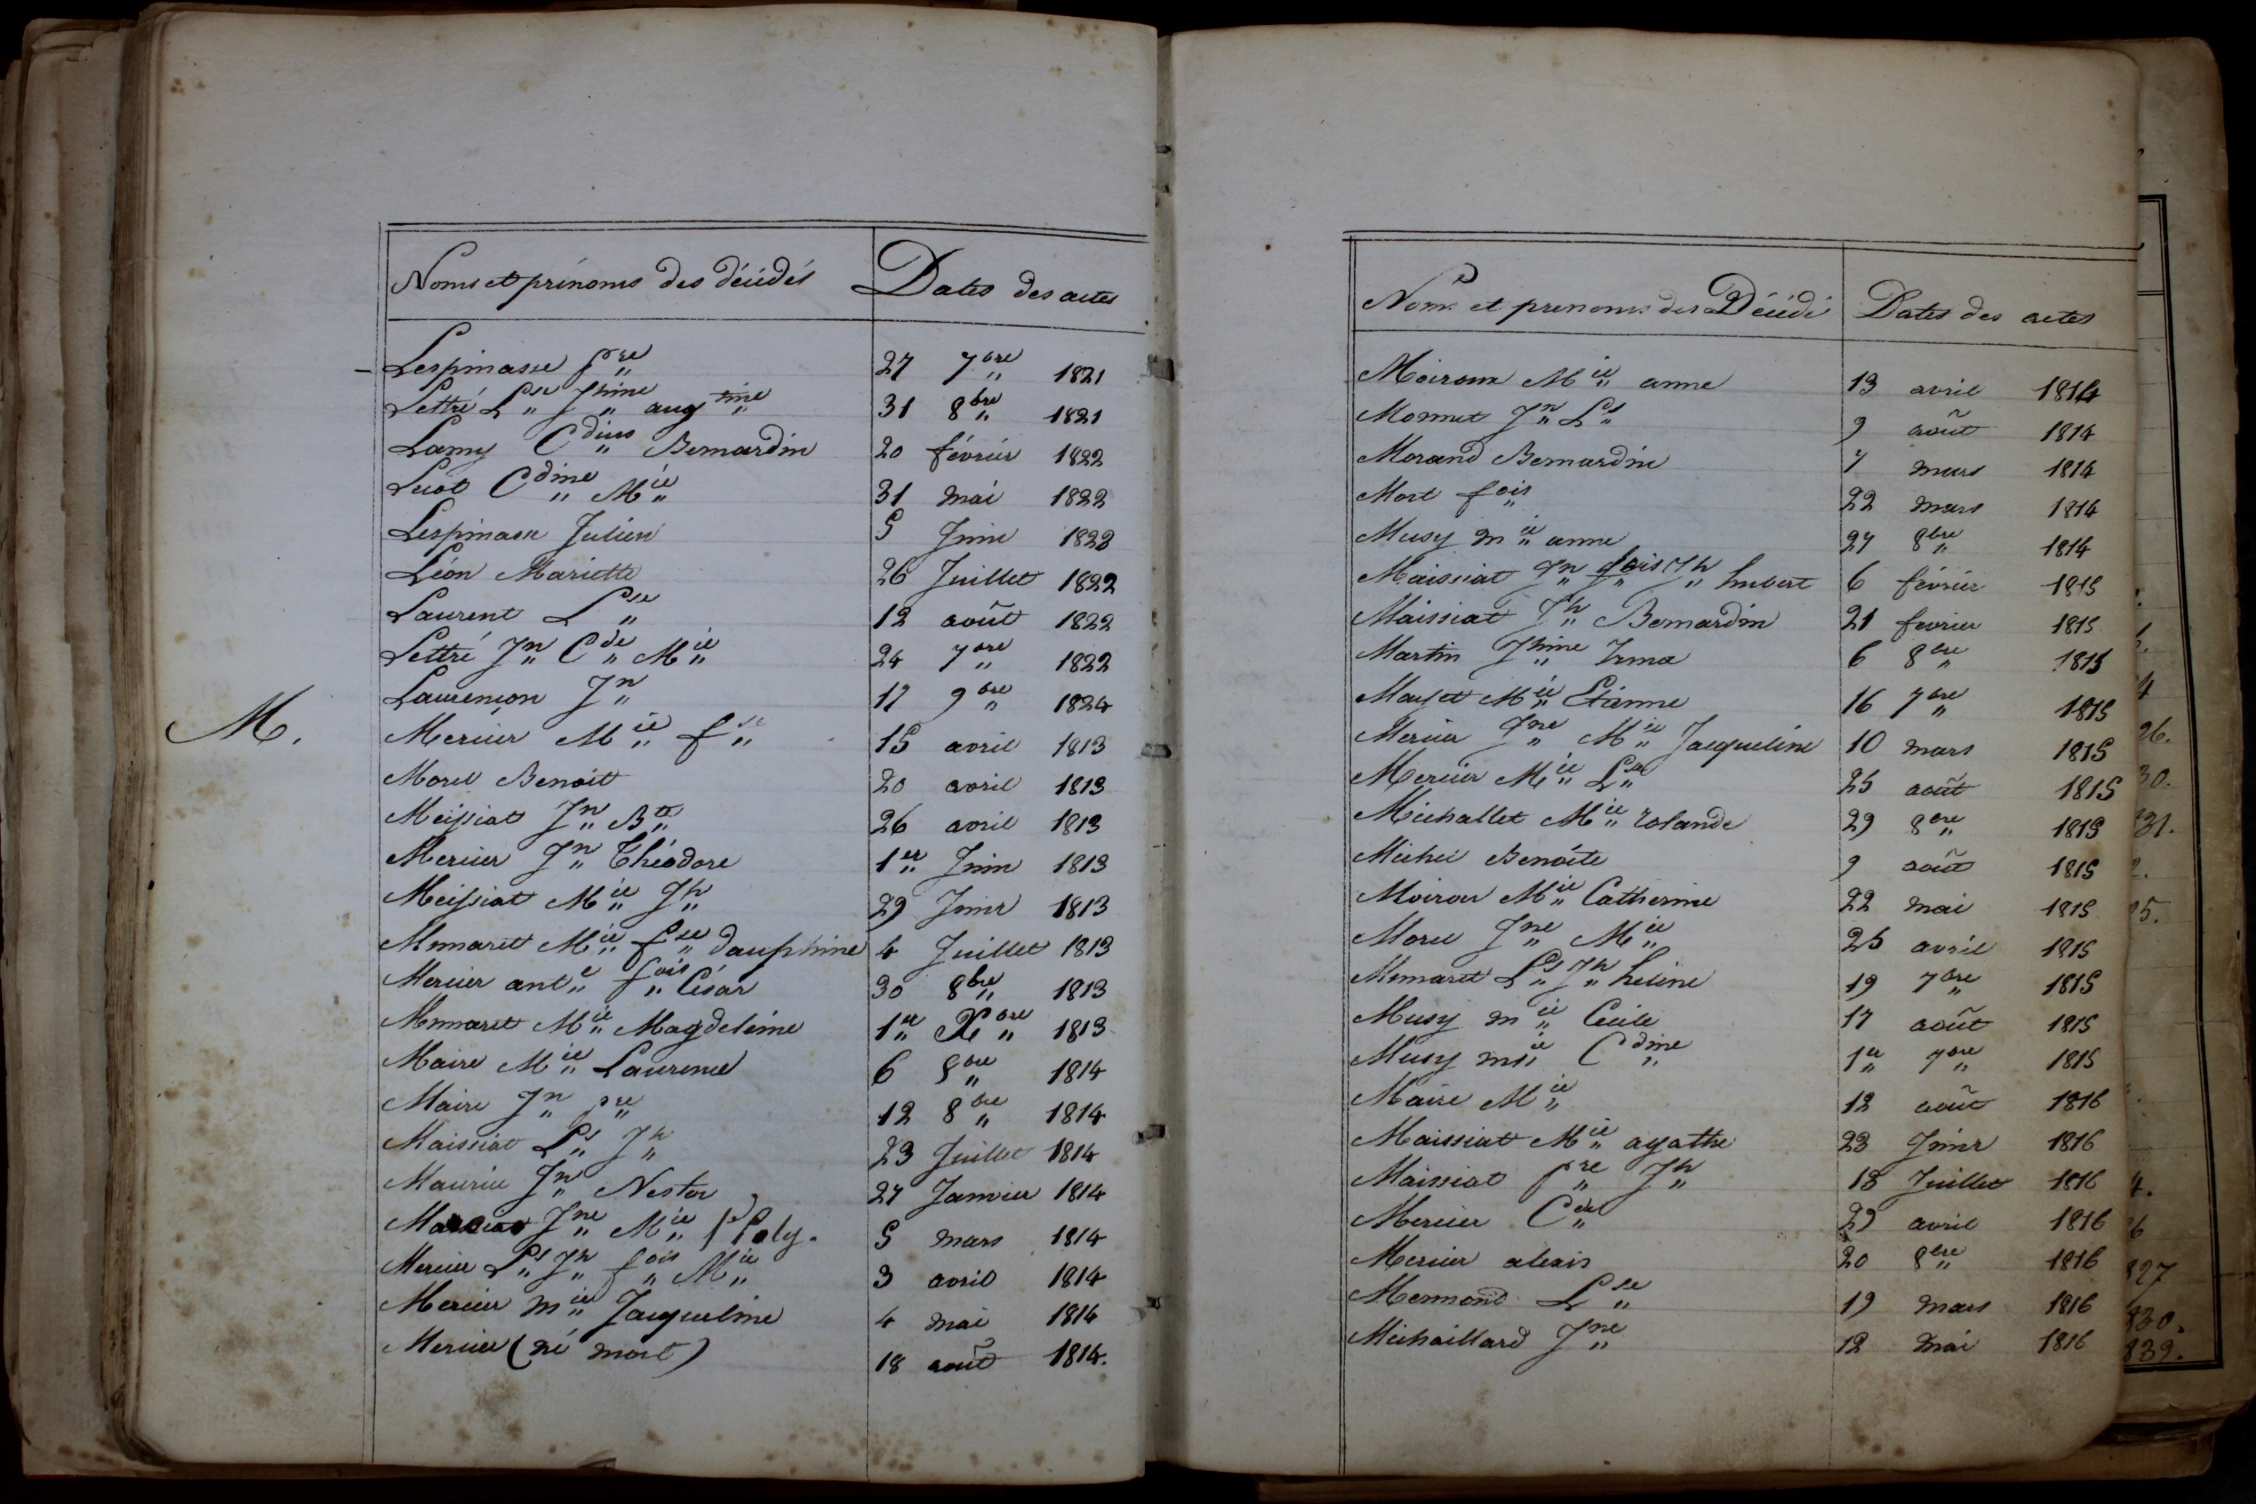 Noms et prénoms des décédés Dates des actes
Lespinasse p.re 27 7bre 1821
Lettré Lse Jphine augtine 31 8bre 1821
Lamy Cdius Bernardin 20 février 1822
Luot Cdine Mie 31 mai 1822
Lespinasse Julien 5 Juin 1822
Léon Mariette 26 Juillet 1822
Laurent Lse 12 août 1822
Lettré Jn Cde Mie 24 7bre 1822
Laurençon Jn 17 9bre 1824
M.
Mercier Mie fse 15 avril 1813
Morel Benoit 20 avril 1813
Meissiat Jn Bte 26 avril 1813
Mercier Jn Théodore 1er Juin 1813
Meissiat Mie Jh 29 Juin 1813
Monnaret Mie fse dauphine 4 Juillet 1813
Mercier ante fois César 30 8bre 1813
Monnaret Mie Magdeleine 1er Xbre 1813
Maire Mie Laurence 6 8bre 1814
Maire Jn pre 12 8bre 1814
Maissiat Ls Jh 23 Juillet 1814
Maurice Jn Nestor 27 Janvier 1814
Jne Mie 5 mars 1814
Mercier Ls Jh fois Mie 3 avril 1814
Mercier mie Jacqueline 4 mai 1814
Mercier (né mort) 18 août 1814.
Noms et prenoms des Décédé Dates des actes
Moiroux Mie anne 13 avril 1814
Monnet Jn Ls 9 août 1814
Morand Bernardin 7 mars 1814
Mort fois 22 mars 1814
Musy mie anne 27 8bre 1814
Maissiat Jn fois Jh hubert 6 février 1815
Maissiat Jh Bernardin 21 fevrier 1815
Martin Jphine Irma 6 8bre 1815
Mayet Mie Etienne 16 7bre 1815
Mercier Jne Mie Jacqueline 10 mars 1815
Mercier Mie Lse 25 août 1815
Michallet Mie rolande 29 8bre 1815
Michel Benoite 9 août 1815
Moiroux Mie Catherine 22 mai 1815
Morel Jne Mie 25 avril 1815
Monnaret Ls Jh héline 19 7bre 1815
Musy mie Cécile 17 août 1815
Musy mie Cdine 1er 7bre 1815
Maire Mie 12 août 1816
Maissiat Mie agathe 23 Juin 1816
Maissiat pre Jh 18 Juillet 1816
Mercier Cde 29 avril 1816
Mercier alexis 20 8bre 1816
Mermond Lse 19 mars 1816
Michaillard Jne 12 mai 1816
26.
30.
31.
25.
827
830.
839.